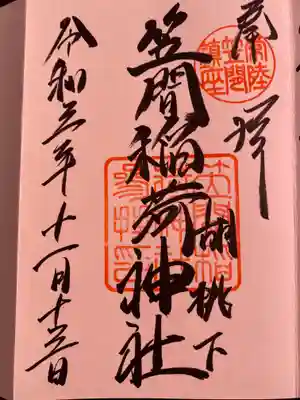 奉拝
常陸
笠間
鎮座
胡桃下
笠間稲荷神社
令和三年十一月十三日